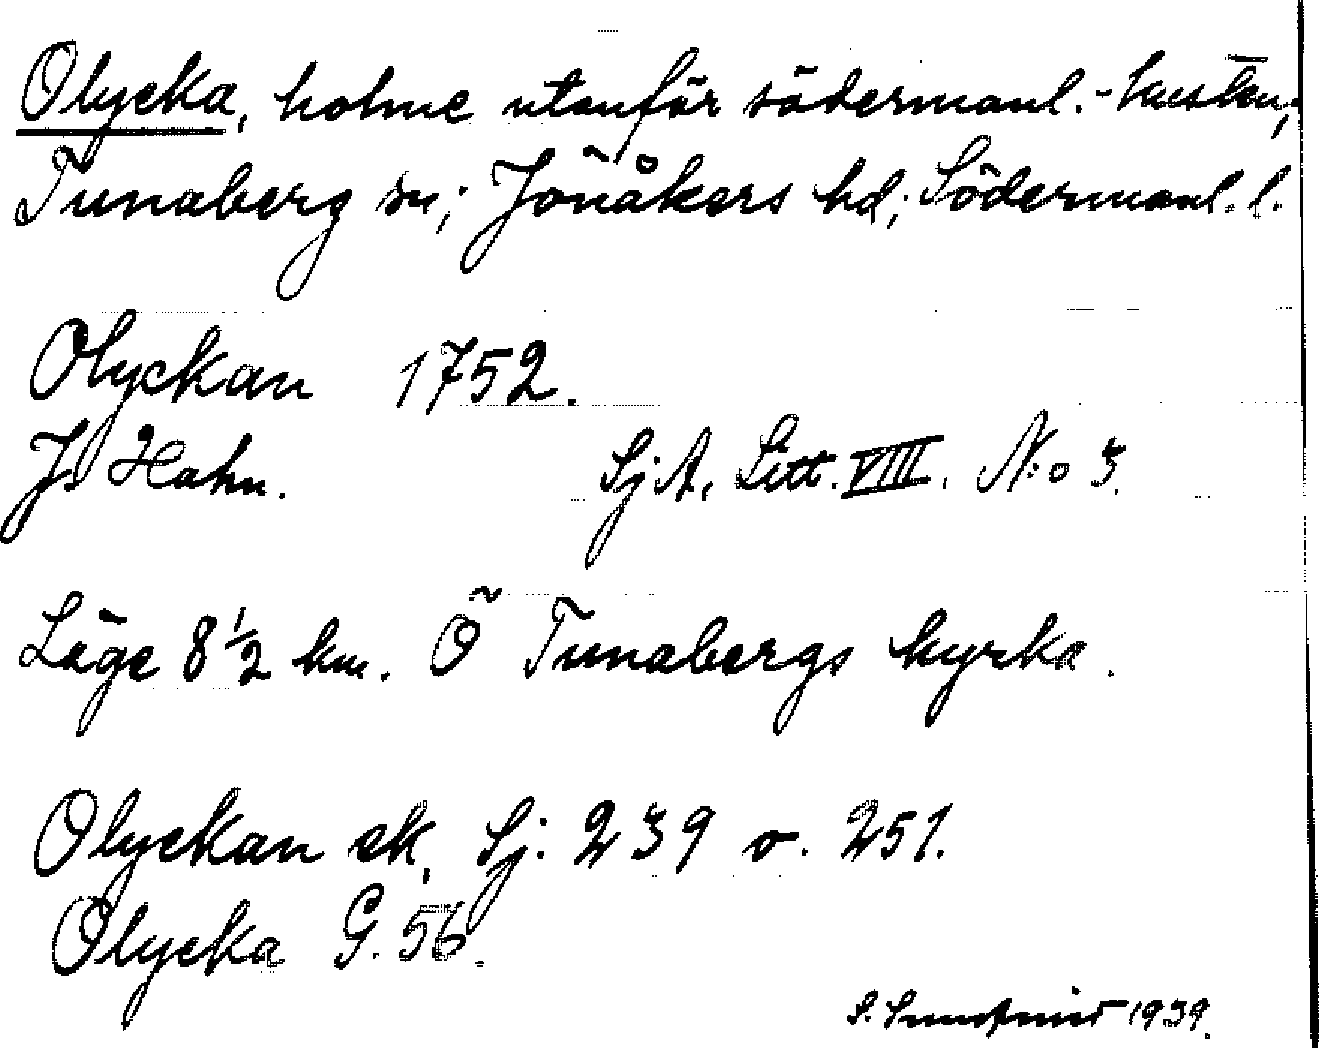 Olycka, holme utanför södermanl.-kusten;
Tunaberg sn; Jönåkers hd; Södermanl. l.
Olyckan 1752.
J. Hahn. SjA, Litt. VIII. N:o 3.
Läge 8 1/2 km. Ö Tunabergs kyrka.
Olyckan ek, Sj. 239 o. 251.
Olycka G. 56.
S. 1939.